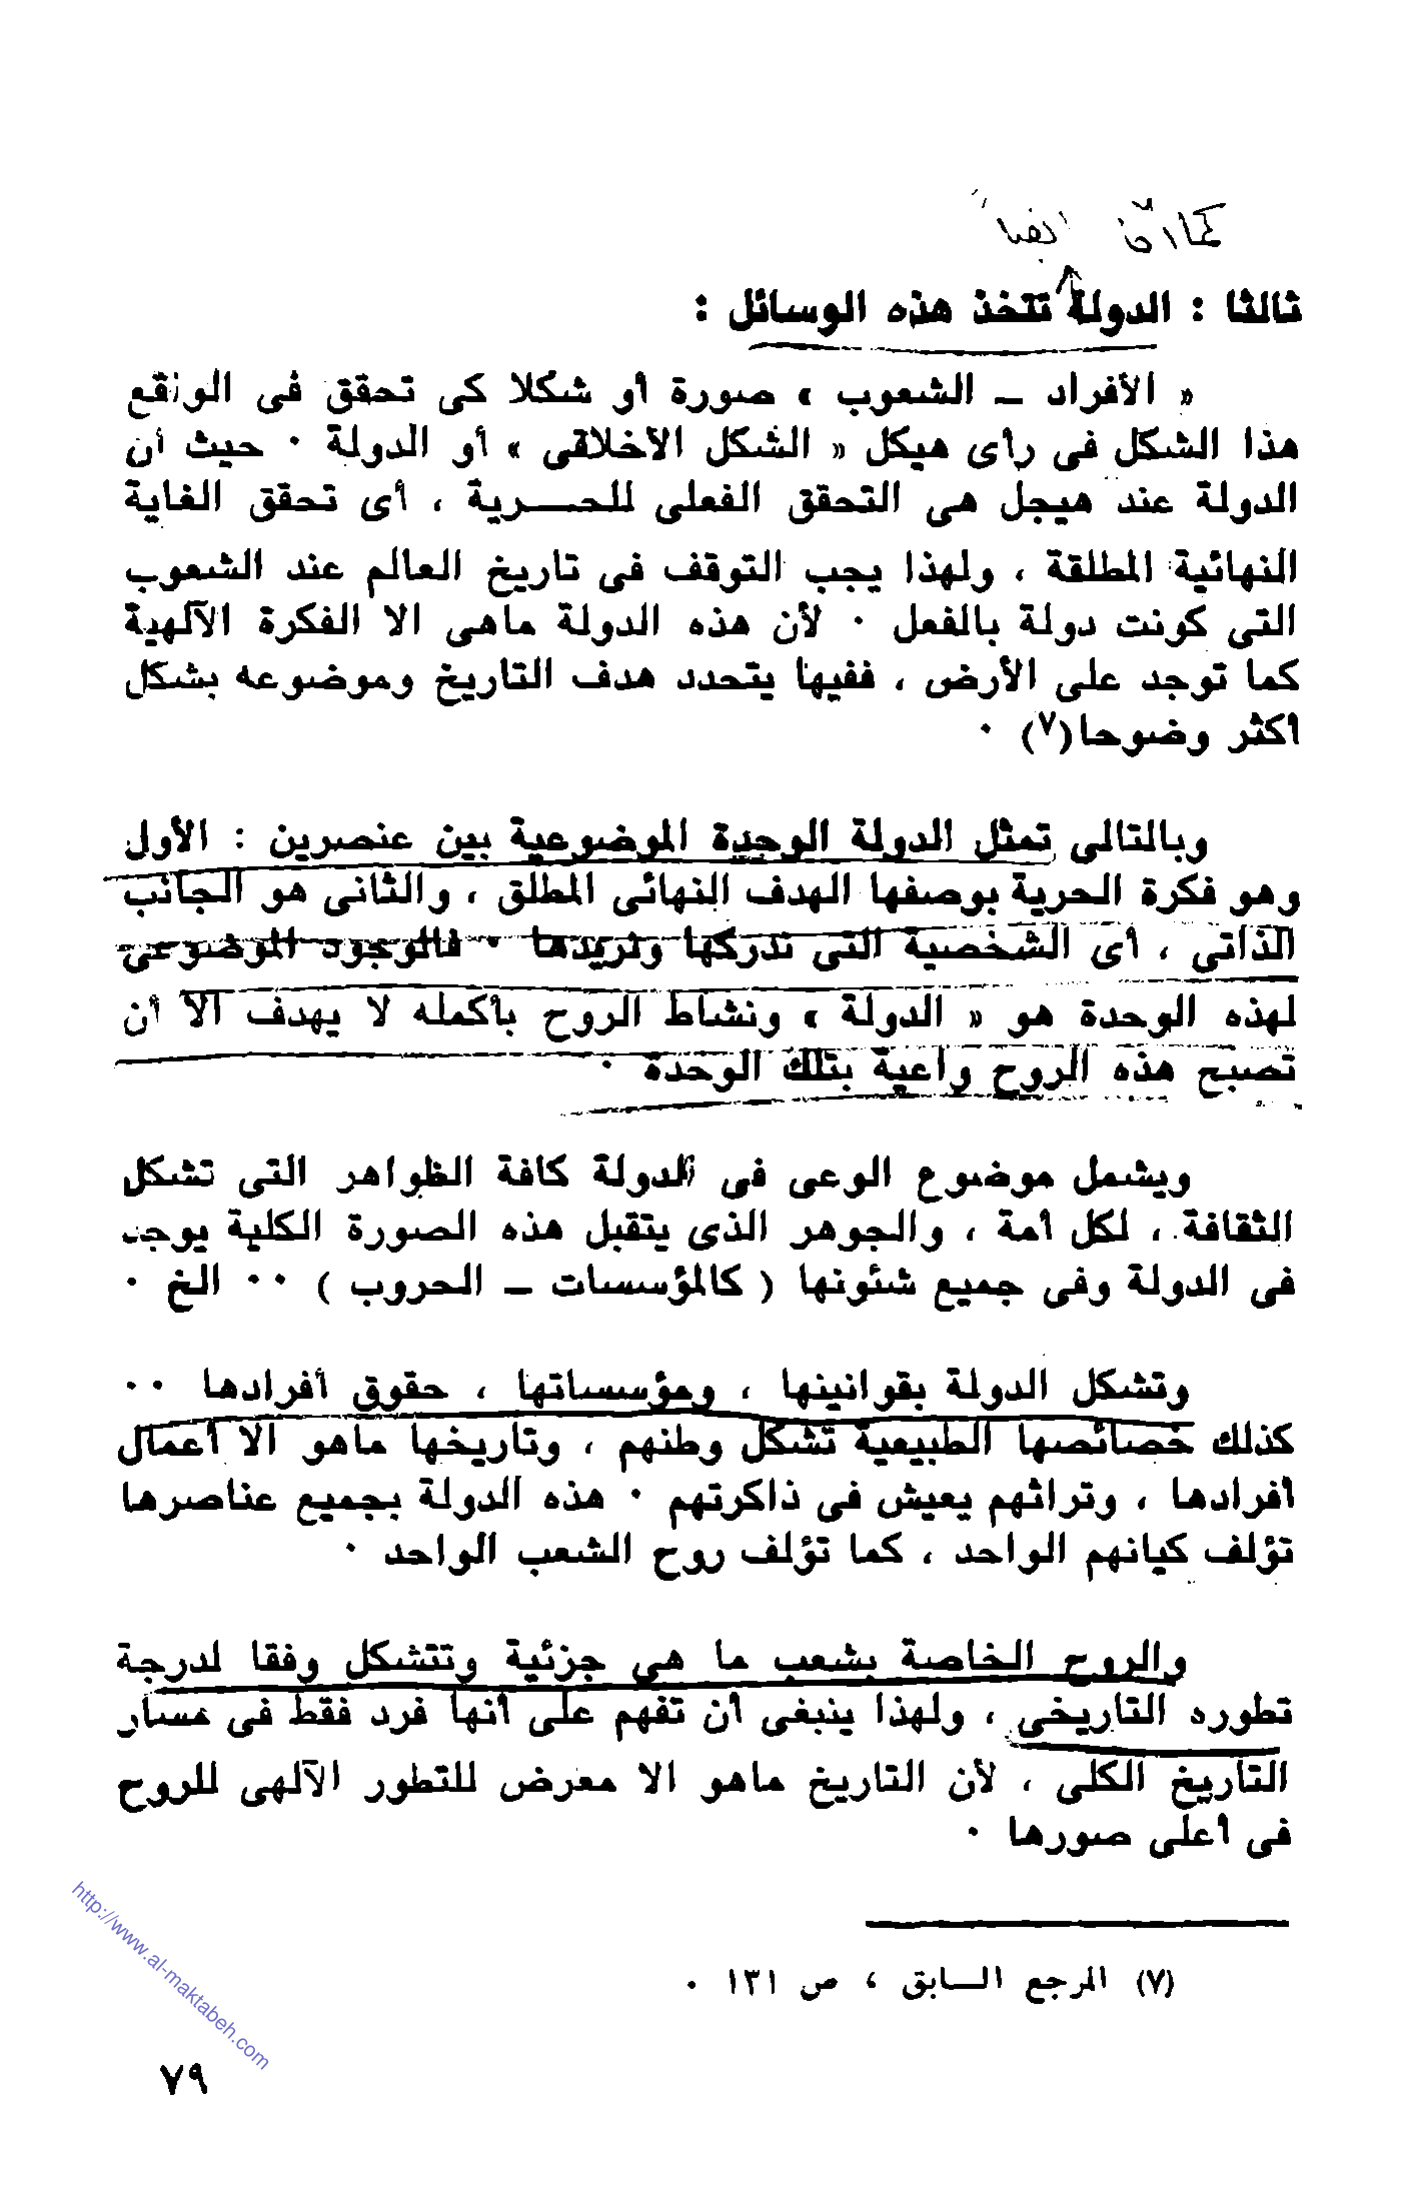 ثالثا : الدولة تتخذ هذه الوسائل :
« الأفراد ــ الشعوب » صورة أو شكلا كى تحقق فى الواقع
هذا الشكل فى رأى هيكل « الشكل الأخلاقى » أو الدولة ٠ حيث أن
الدولة عند هيجل هى التحقق الفعلى للحـــرية ، أى تحقق الغاية
النهائية المطلقة ، ولهذا يجب التوقف فى تاريخ العالم عند الشعوب
التى كونت دولة بالفعل ٠ لأن هذه الدولة ماهى الا الفكرة الآلهية
كما توجد على الأرض ، ففيها يتحدد هدف التاريخ وموضوعه بشكل
أكثر وضوحا(٧) ٠
وبالتالى تمثل الدولة الوحدة الموضوعية بين عنصرين : الأول
وهو فكرة الحرية بوصفها الهدف النهائى المطلق ، والثانى هو الجانب
الذاتى ، أى الشخصية التى تدركها وتريدها ٠ فالوجود الموضوعى
لهذه الوحدة هو « الدولة » ونشاط الروح بأكمله لا يهدف الا أن
تصبح هذه الروح واعية بتلك الوحدة ٠
ويشمل موضوع الوعى فى الدولة كافة الظواهر التى تشكل
الثقافة ، لكل أمة ، والجوهر الذى يتقبل هذه الصورة الكلية يوجد
فى الدولة وفى جميع شئونها ( كالمؤسسات ــ الحروب ) ٠٠ الخ ٠
وتشكل الدولة بقوانينها ، ومؤسساتها ، حقوق أفرادها ٠٠
كذلك خصائصها الطبيعية تشكل وطنهم ، وتاريخها ماهو الا أعمال
أفرادها ، وتراثهم يعيش فى ذاكرتهم ٠ هذه الدولة بجميع عناصرها
تؤلف كيانهم الواحد ، كما تؤلف روح الشعب الواحد ٠
والروح الخاصة بشعب ما هى جزئية وتتشكل وفقا لدرجة
تطوره التاريخى ، ولهذا ينبغى أن تفهم على أنها فرد فقط فى مسار
التاريخ الكلى ، لأن التاريخ ماهو الا معرض للتطور الآلهى للروح
فى أعلى صورها ٠
(٧) المرجع السابق ، ص ١٣١ ٠
http://www.al-maktabeh.com
٧٩